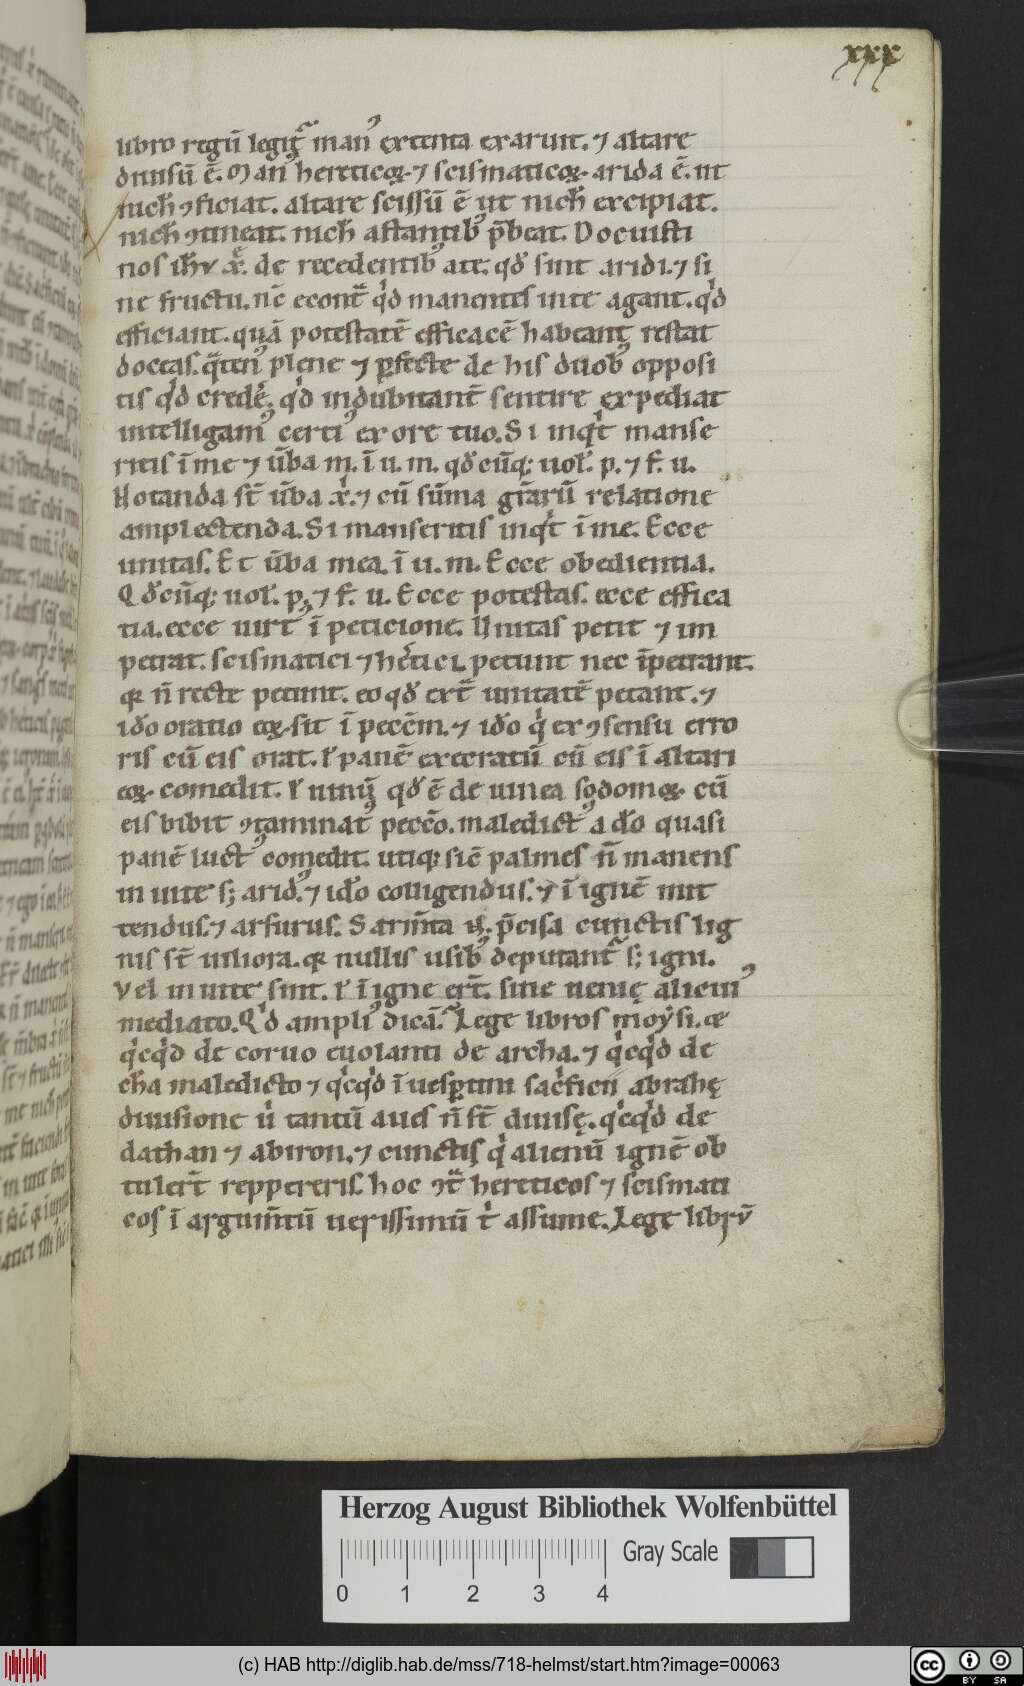 xxx
libro regū legiť manꝰ extenta exarunt. ⁊ altare
diuisū ē. Manꝰ hereticoꝝ ⁊ scismaticoꝝ arida ē. ut
nich ꝯficiat. altare scissū ē ut nich excipiat.
nich ꝯtineat. nich astantibꝰ p̄beat. Docuisti
nos ihū xp̄e. de recedentibꝰ a te. qđ sint aridi. ⁊ si
ne fructu. nc̄ econt̃ qͥd manentes in te agant. qͥd
efficiant. quā potestatē efficacē habeant. restat
doceas. q̃tenꝰ plene ⁊ ꝑfecte de his duobꝰ opposi
tis qͥd credẽ. qͥd indubitant̃ sentire expediat
intelligamꝰ certiꝰ ex ore tuo. Si inqͥt manse
ritis ī me ⁊ ũba m. ī u. m. qđcūq; uoł. p. ⁊ f. u.
Notanda st̄ ũba xp̄i. ⁊ cū sūma gr̄arū relatione
amplectenda. Si manseritis inqͥt ī me. Ecce
unitas. Et ũba mea. ī u. m. Ecce obedientia.
Qđcūq; uoł. p. ⁊ f. u. Ecce potestas. ecce effica
tia. ecce uirtꝰ ī peticione. Unitas petit ⁊ im
petrat. scismatici ⁊ hẽtici petunt nec īpetrant.
qꝛ n̄ recte petunt. eo qđ ext̃ unitatē petant. ⁊
iđo oratio eoꝝ sit ī peccm̄. ⁊ iđo qͥ ex ꝯsensu erro
ris cū eis orat. ł panē execratū cū eis ī altari
eoꝝ comedit. ł uinū qđ ē de uinea sodomoꝝ cū
eis bibit ꝯtaminatꝰ pecc̄o. maledictꝰ a dō quasi
panē luctꝰ comedit. utiqꝫ sic̄ palmes n̄ manens
in uite s; aridꝰ. ⁊ iđo colligendus. ⁊ ī ignē mit
tendus. ⁊ arsurus. Sarm̄ta u̾. p̄cisa cunctis lig
nis st̄ uiliora. qꝛ nullis usibꝰ deputant̃ s; igni.
Vel in uite sint. ł ī igne ert̃. sine uenię alicuiꝰ
mediato. Qͥd ampliꝰ dicā. Lege libros moysi. ⁊
qͥcqͥd de coruo euolanti de archa. ⁊ qͥcqͥd de
cha maledicto ⁊ qͥcqͥd ī uesꝑtini sac̾ficii abrahę
diuisione ů tantū aues n̄ st̄ diuisę. qͥcqͥd de
dathan ⁊ abiron. ⁊ cunctis qͥ alienū ignē ob
tulert̃ reppereris. hoc ꝯt̃ hereticos ⁊ scismati
cos ī argum̄tū uerissimū tͥ assume. Lege librū
Herzog August Bibliothek Wolfenbüttel
Gray Scale
0 1 2 3 4
(c) HAB http://diglib.hab.de/mss/718-helmst/start.htm?image=00063
cc BY SA